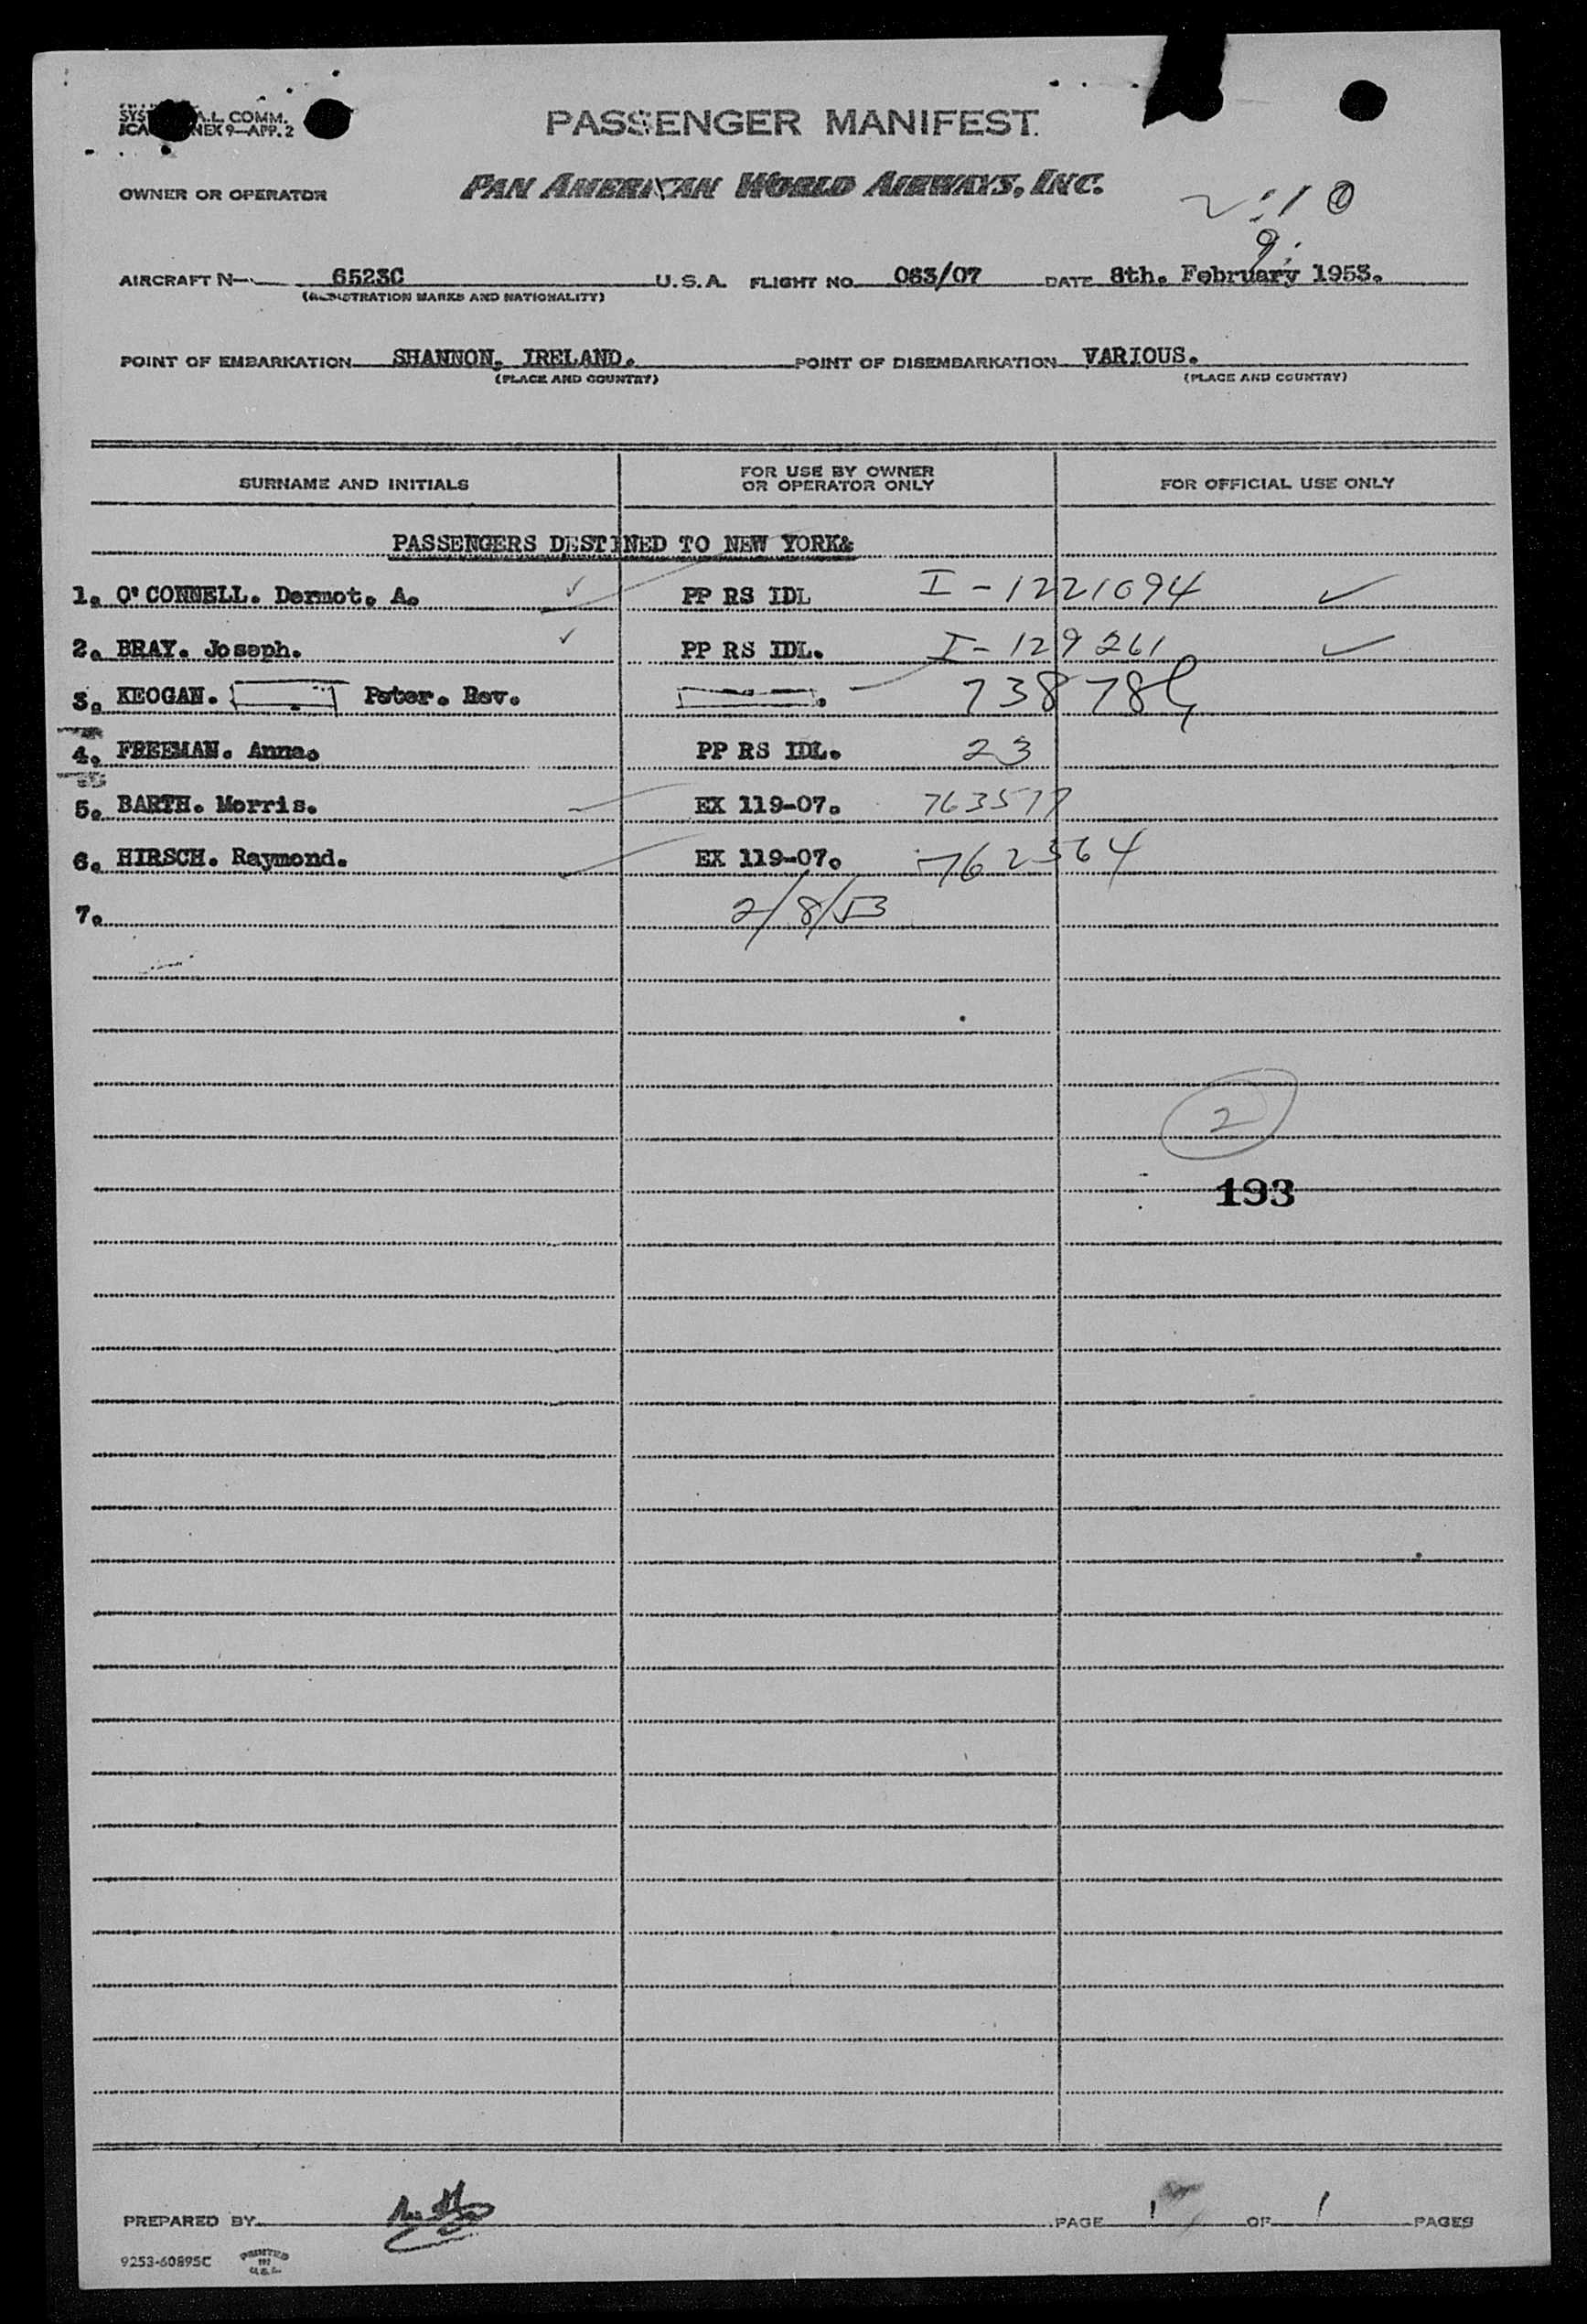 A.L. COMM.
NEX 9—APP. 2
PASSENGER MANIFEST
OWNER OR OPERATOR PAN AMERICAN WORLD AIRWAYS, INC.
AIRCRAFT N- 6523C U.S.A. FLIGHT NO. 063/07 DATE 8th. February 1953.
(REGISTRATION MARKS AND NATIONALITY)
POINT OF EMBARKATION SHANNON, IRELAND. POINT OF DISEMBARKATION VARIOUS.
(PLACE AND COUNTRY) (PLACE AND COUNTRY)
SURNAME AND INITIALS FOR USE BY OWNER OR OPERATOR ONLY FOR OFFICIAL USE ONLY
PASSENGERS DESTINED TO NEW YORK&
1. O'CONNELL. Dermot. A. PP RS IDL I-1221094
2. BRAY. Joseph. PP RS IDL. I-129261
3. KEOGAN. Peter. Rev. 73878
4. FREEMAN. Anna. PP RS IDL. 23
5. BARTH. Morris. EX 119-07. 763577
6. HIRSCH. Raymond. EX 119-07. 762564
7. 2/8/53
2
193
PREPARED BY PAGE 1 OF 1 PAGES
9253-60895C PRINTED IN U.S.A.